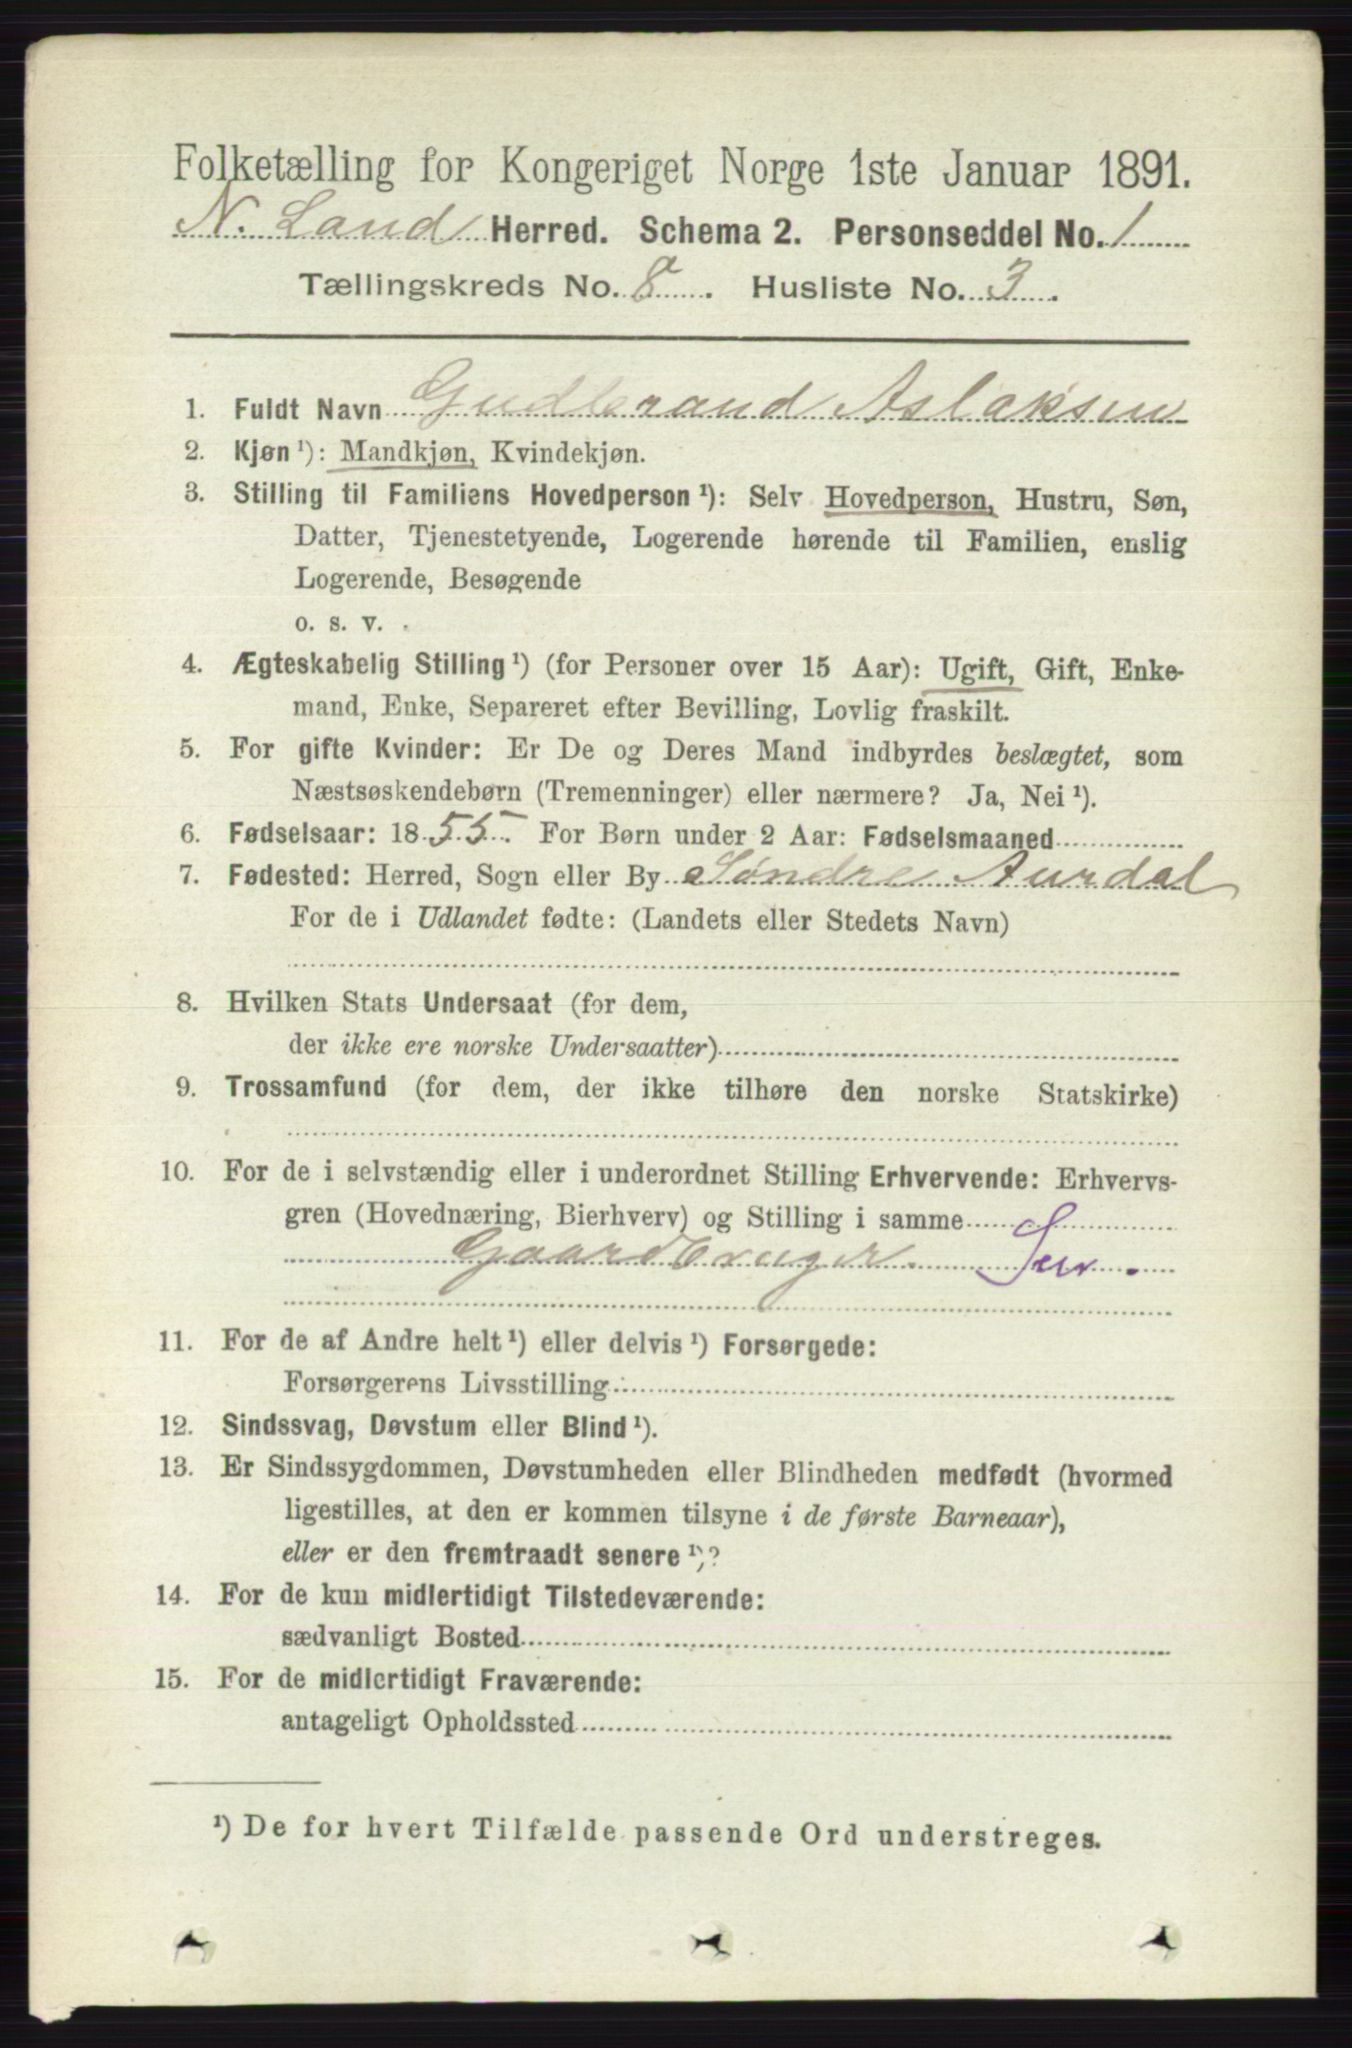 Folketælling for Kongeriget Norge 1ste Januar 1891.
N. Land Herred. Schema 2. Personseddel No. 1
Tællingskreds No. 8. Husliste No. 3.
1. Fuldt Navn Gudbrand Aslaksen
2. Kjøn ¹): Mandkjøn, Kvindekjøn.
3. Stilling til Familiens Hovedperson ¹): Selv Hovedperson, Hustru, Søn,
Datter, Tjenestetyende, Logerende hørende til Familien, enslig
Logerende, Besøgende
o. s. v. .
4. Ægteskabelig Stilling ¹) (for Personer over 15 Aar): Ugift, Gift, Enke-
mand, Enke, Separeret efter Bevilling, Lovlig fraskilt.
5. For gifte Kvinder: Er De og Deres Mand indbyrdes beslægtet, som
Næstsøskendebørn (Tremenninger) eller nærmere? Ja, Nei ¹).
6. Fødselsaar: 1855. For Børn under 2 Aar: Fødselsmaaned
7. Fødested: Herred, Sogn eller By Søndre Aurdal
For de i Udlandet fødte: (Landets eller Stedets Navn)
8. Hvilken Stats Undersaat (for dem,
der ikke ere norske Undersaatter)
9. Trossamfund (for dem, der ikke tilhøre den norske Statskirke)
10. For de i selvstændig eller i underordnet Stilling Erhvervende: Erhvervs-
gren (Hovednæring, Bierhverv) og Stilling i samme
Gaardbruger.
11. For de af Andre helt ¹) eller delvis ¹) Forsørgede:
Forsørgerens Livsstilling
12. Sindssvag, Døvstum eller Blind ¹).
13. Er Sindssygdommen, Døvstumheden eller Blindheden medfødt (hvormed
ligestilles, at den er kommen tilsyne i de første Barneaar),
eller er den fremtraadt senere ¹)?
14. For de kun midlertidigt Tilstedeværende:
sædvanligt Bosted
15. For de midlertidigt Fraværende:
antageligt Opholdssted
¹) De for hvert Tilfælde passende Ord understreges.